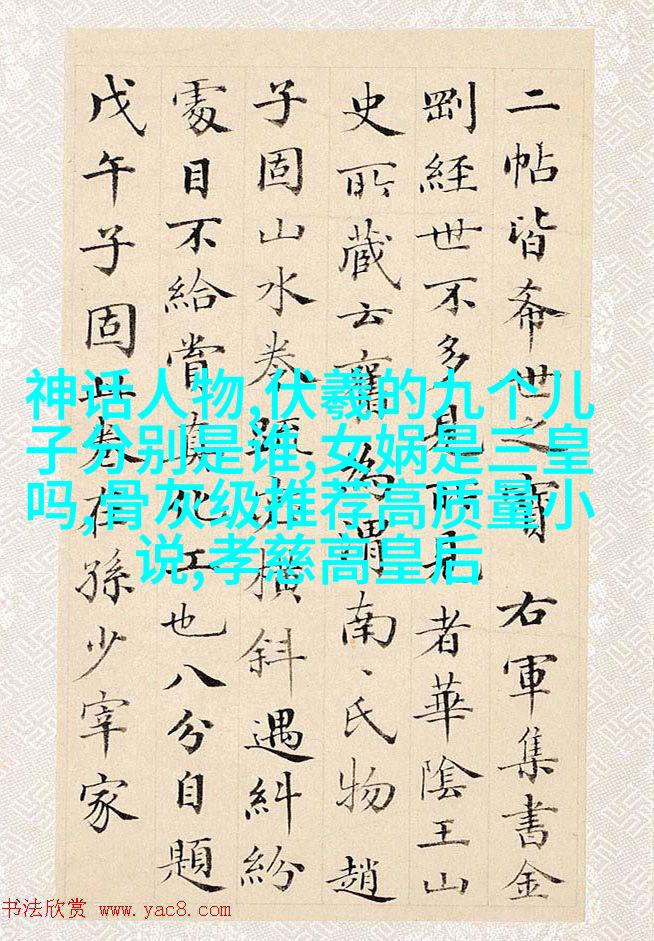 二帖皆希世之寶 右軍集書金
剛經世不多見而見者華陰王山
史所藏云舊為謂南、氏物趙
子固山水卷疏橫斜遇糾紛
處目不給賞真化工也八分自題
戊午子固此卷在孫少宰家
神话人物,伏羲的九个儿
子分别是谁,女娲是三皇
吗,骨灰级推荐高质量小
说,孝慈高皇后
书法欣赏 www.yac8.com